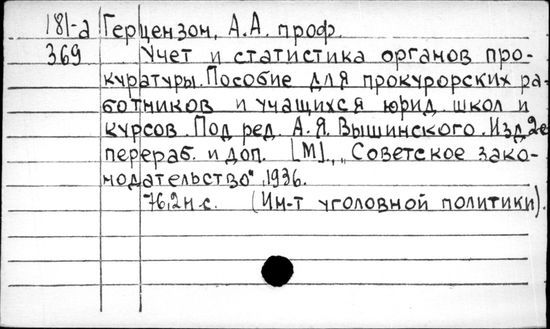 181-а Герцензон, А.А. проф.
369 Учет и статистика органов про-
куратуры. Пособие для прокурорских ра-
ботников и учащихся юрид. школ и
курсов. Под ред. А.Я. Вышинского. Изд. 2е
перераб. и доп. [М]., „Советское зако-
нодательство“, 1936.
76,2 н.с. (Ин-т уголовной политики).